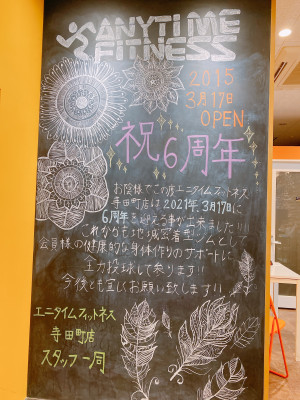 ANYTIME
FITNESS
2015
3月17日
OPEN
祝6周年
お陰様でこの度エニタイムフィットネス
寺田町店は2021年3月17日に
6周年を迎える事が出来ました!!!
これからも地域密着型ジムとして
会員様の健康的な身体作りのサポートに
全力投球して参ります!!
今後とも宜しくお願い致します!!
エニタイムフィットネス
寺田町店
スタッフ一同